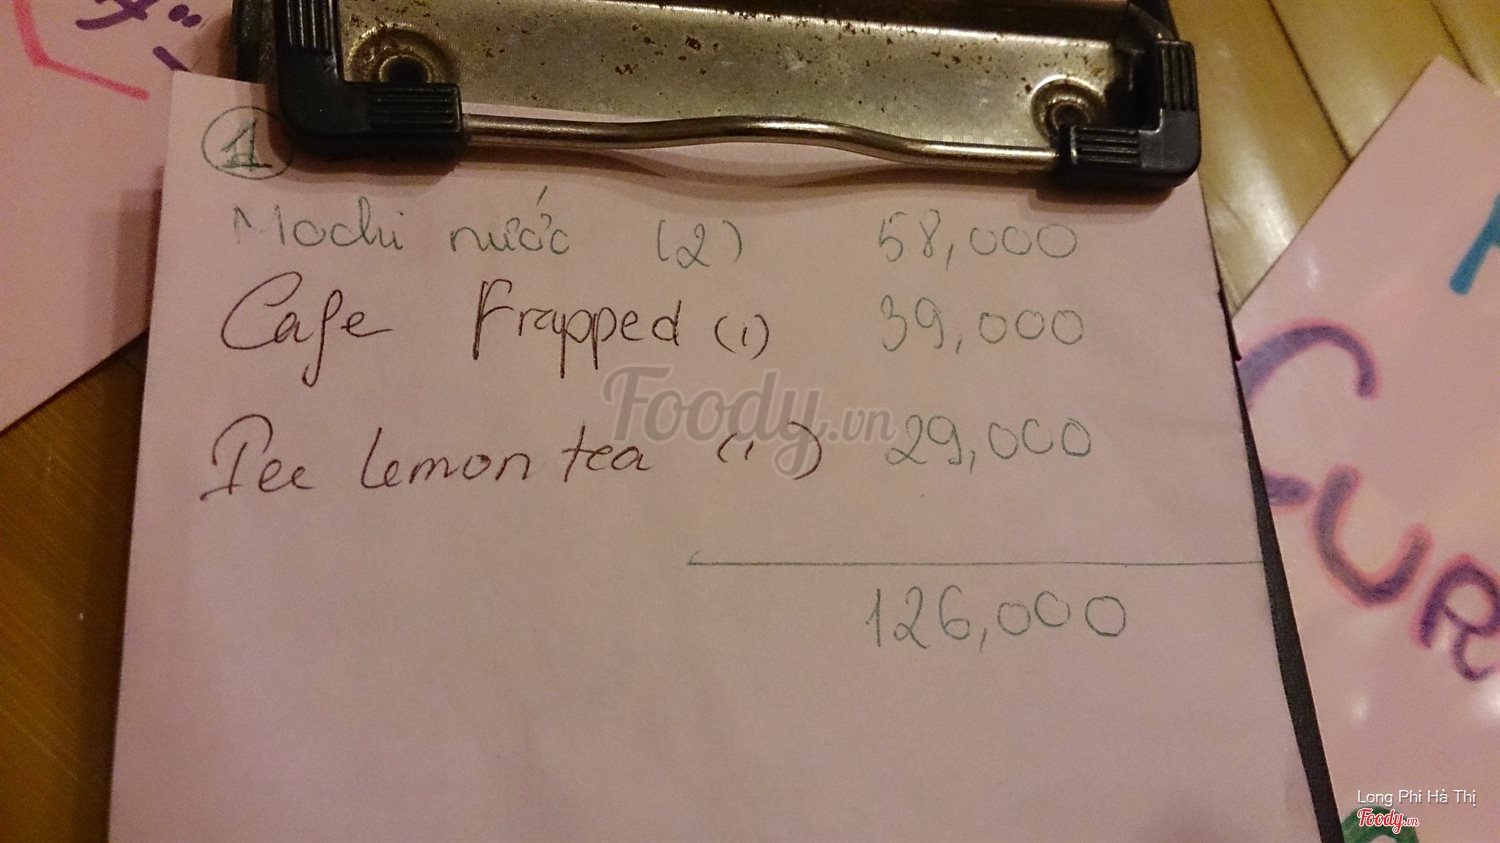 1
Mochi nước (2) 58,000
Cafe Frapped (1) 39,000
Ice lemon tea (1) 29,000
126,000
Foody.vn
CUR
Long Phi Hà Thị
Foody.vn